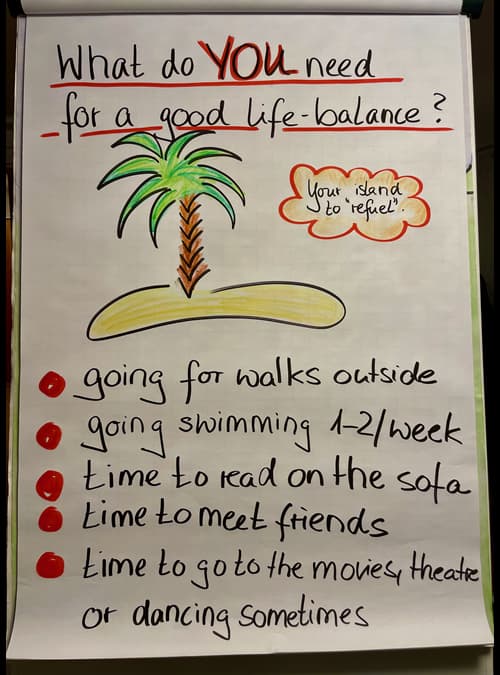 What do YOU need
for a good life-balance?
Your island
to "refuel".
going for walks outside
going swimming 1-2/week
time to read on the sofa
time to meet friends
time to go to the movies, theatre
or dancing sometimes